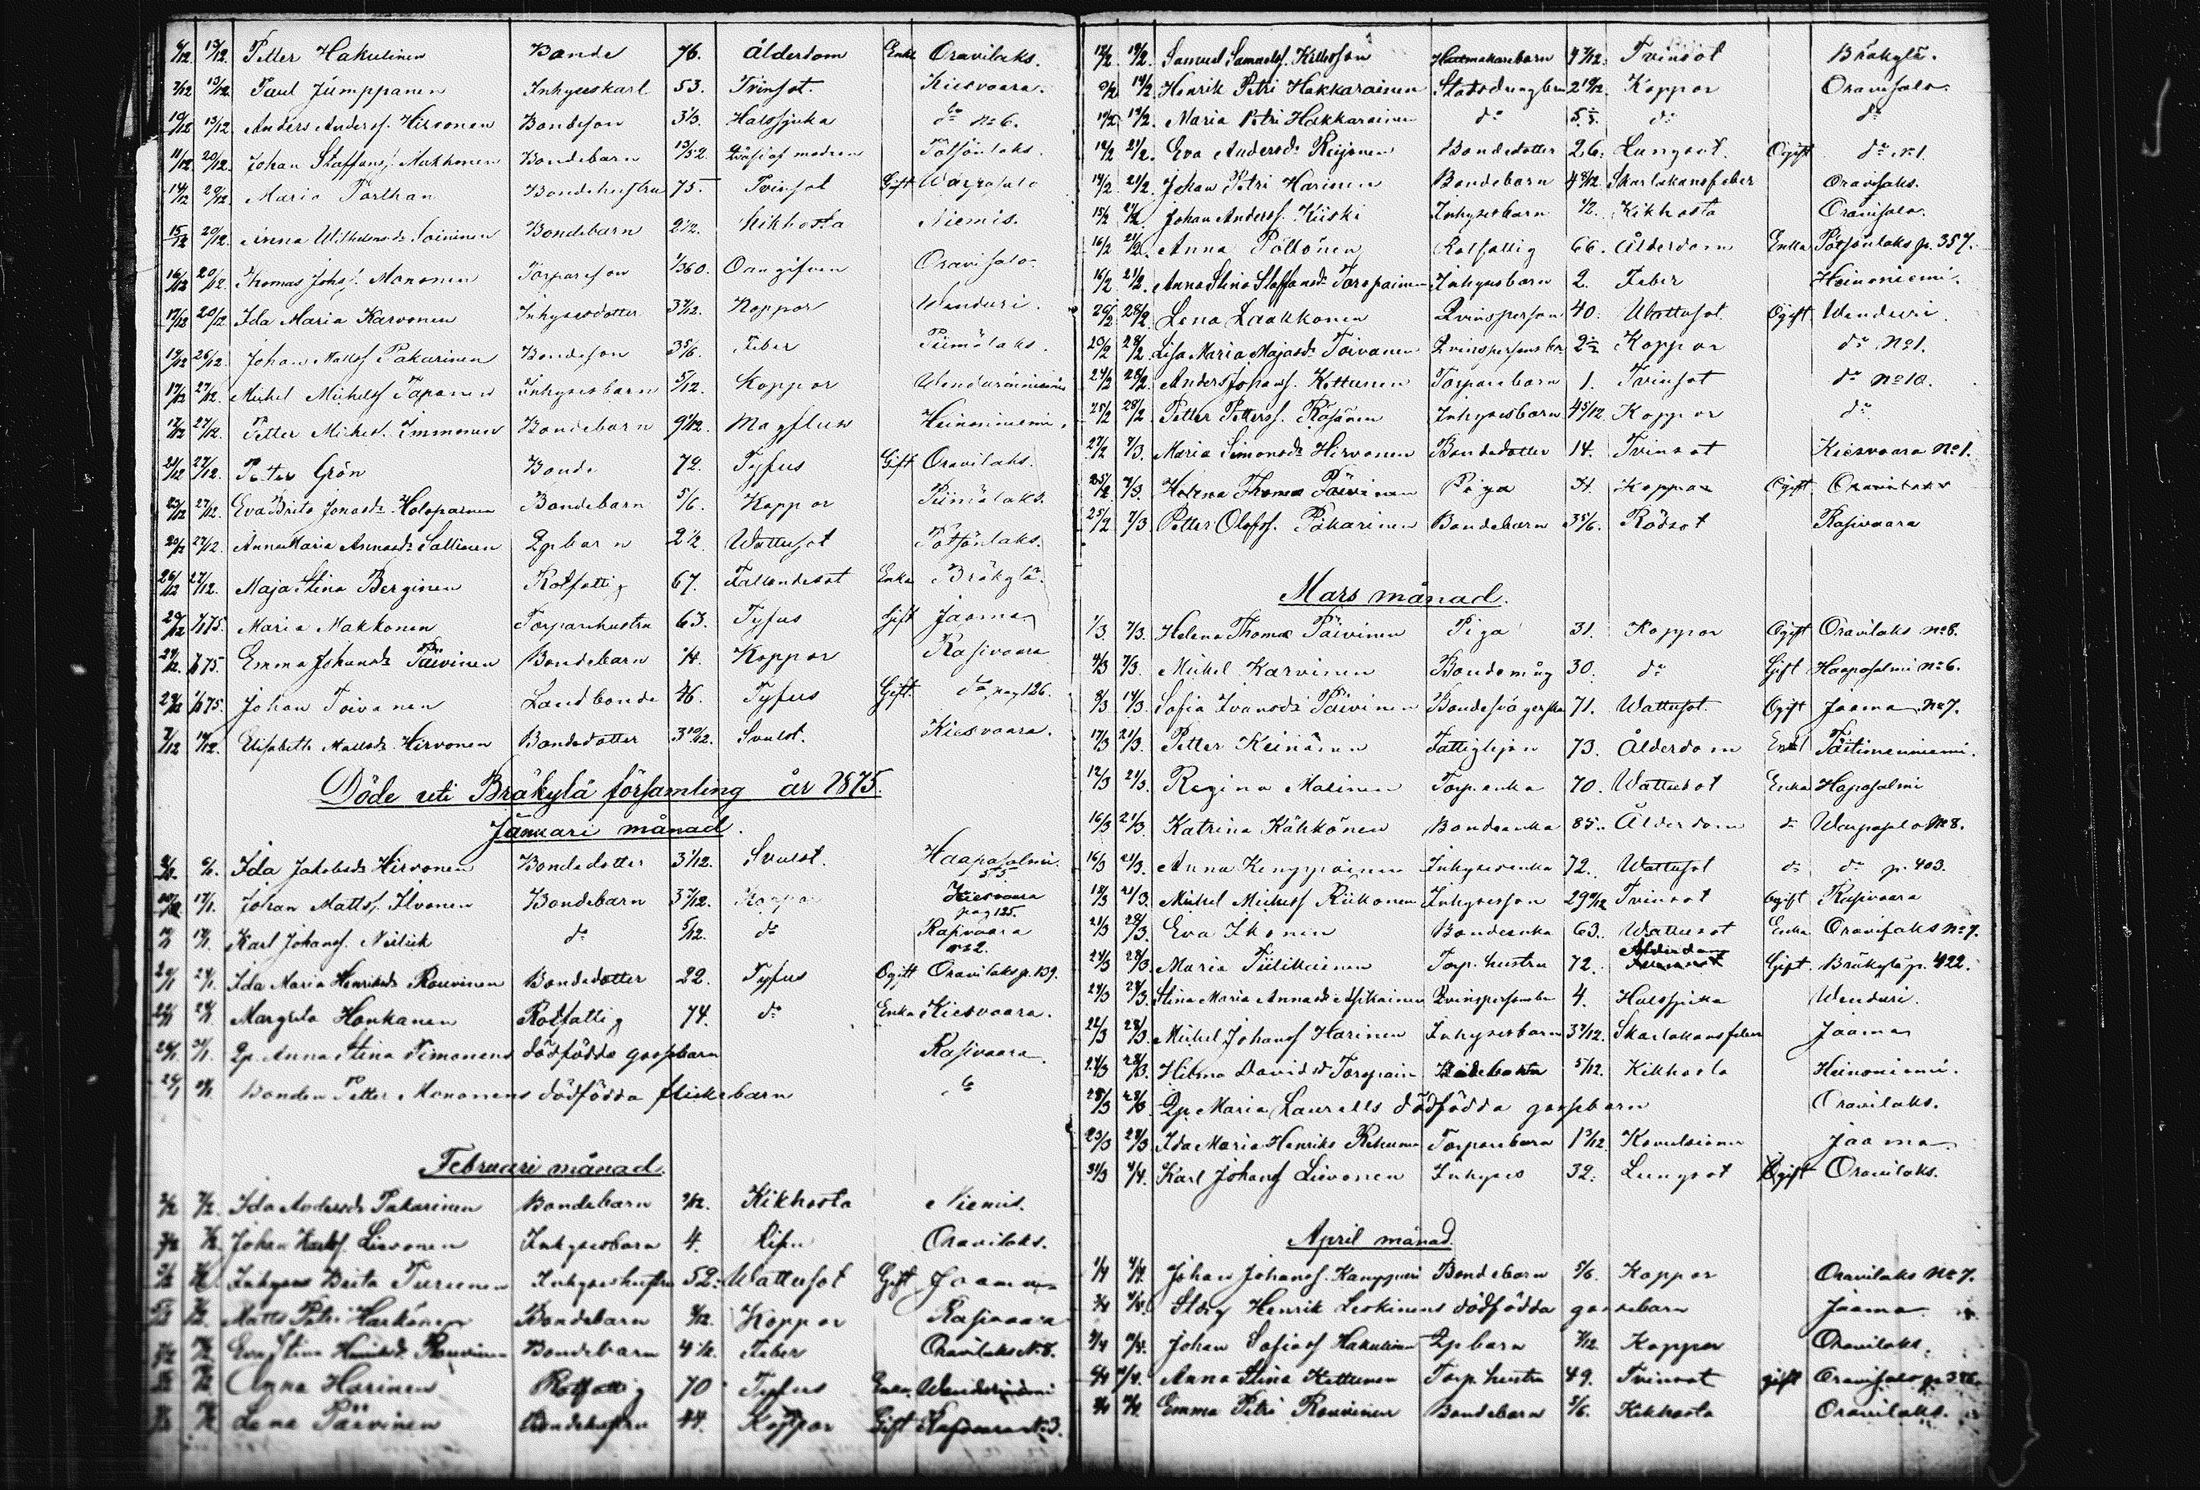 6/12 13/12. Petter Hakulinen Bonde 76. Ålderdom Enkl. Oravilaks.
7/12 13/12 Paul Jumppanen Inhyseskarl 53. Tvinsot. Kiesvaara.
10/12 13/12. Anders Andersf. Hirvonen Bondeson 3 1/3. Halssjuka do No 6.
11/12 20/12. Johan Staffansf. Mukkonen Bondebarn 13/52. af modren Pötsönlaks.
14/12 20/12 Maria Parkkan Bondehustru 75. Tvinsot Gift Warpasalo
15/12 20/12. Anna Wilhelmsdr Soininen Bondebarn 2 1/2. Kikhosta Niemis.
16/12 20/12. Thomas Johsf. Mononen Torpareson 1/360. Oangifven Oravisalo.
17/12 20/12 Ida Maria Karvonen Inhysesdotter 3 7/12. Koppor Wenduri.
19/12 26/12. Johan Mattsf Pakarinen Bondeson 3 5/6. Feber Piimälaks.
17/12 27/12. Mickel Mickelsf Tapanin Inhysesbarn 5/12. Koppor
17/12 27/12. Petter Mickelsf. Immonen Bondebarn 9/12. Magflus Heinoniemi.
21/12 27/12. Peter Grön Bonde 72. Tyfus Gift Oravilaks.
23/12 27/12. Eva Brita Jonasdr Holopainen Bondebarn 5/6. Koppor Piimälaks.
20/12 27/12. Anna Maria Annasdr Sallinen Qpbarn 2 1/2. Wattusot Pötsönlaks.
26/12 27/12. Maja Stina Berginen Rotfattig 67. Fallandesot Enka Bräkylä.
29/12 1/1 75. Maria Makkonen Torparehustru 63. Tyfus Gift Jaama
27/12 1/1 75. Emma Johansdr Päivinen Bondebarn 1/4. Koppor Rasivaara
29/12 1/1 75. Johan Toivanen Landbonde 46. Tyfus Gift do pag 126.
7/12 13/12. Elisabeth Mattsdr Hirvonen Bondedotter 3 10/12. Svulst. Kiesvaara.
Döde uti Bräkylä församling år 1875.
Januari månad.
6/1. Ida Jakobsdr Hirvonen Bondedotter 3 1/12. Svulst. Haapasalmi
55
17/1. Johan Mattsf. Ilvonen Bondebarn 3 7/12. Koppor Kiesvaara
pag 125.
17/1. Karl Johansf. Nislick do 5/12. do Rasivaara
No 2.
24/1. Ida Maria Henriksdr Rouvinen Bondedotter 22. Tyfus Ogift Oravilaks p. 139.
24/1 Margreta Honkanen Rotfattig 74. do Enka Kiesvaara.
31/1. Qp. Anna Stina Timonens dödfödda gossebarn Rasivaara.
Bonden Petter Mononens dödfödda flickebarn do
Februari månad.
7/2. Ida Andersdr Pakarinen Bondebarn Kikhosta Niemis.
Johan Karlsf. Lievonen Inhysesbarn 4. Risen Oravilaks.
Inhyses Brita Turunen Inhyseshustru 52. Wattusot Gift Jaama
Matts Petri Harkönen Bondebarn Koppor Rasivaara
Eva Stina Henriksdr Rouvinen Bondebarn Feber Oravilaks No 8.
Anna Harinen Rotfattig 70 Tyfus Enka
Lena Päivinen Bondehustru 44. Koppor Gift Rasivaara No 3.
12/2 14/2. Samuel Samuelsf. Killosson 4 7/12. Tvinsot Bräkylä.
14/2. Henrik Petri Hakkarainen 2 10/12. Koppor Oravisalo.
14/2. Maria Petri Hakkarainen do 5. do do
12/2 21/2. Eva Andersdr Reijonen Bondedotter 26. Lungsot. Ogift do No 1.
14/2 21/2. Johan Petri Harinen Bondebarn 4 8/12. Skarlakansfeber Oravisalo.
15/2 21/2. Johan Andersf. Kiiski Inhysesbarn 1/2. Kikhosta Oravisalo.
16/2 21/2. Anna Pöllönen Rotfattig 66. Ålderdom Enka Pötsönlaks p. 357.
16/2 21/2. Anna Stina Staffansdr Toropainen Inhysesbarn 2. Feber Heinoniemi.
20/2 28/2. Lena Laakkonen Qvinsperson 40. Wattusot. Ogift Wenduri.
20/2 28/2. Lisa Maria Majasdr Toivanen Qvinspersons bn 2 1/2 Koppor do No 1.
24/2 28/2. Anders Johansf. Kettunen Torparebarn 1. Tvinsot do No 10.
25/2 28/2. Petter Pettersf. Räsänen Inhysesbarn 4 5/12. Koppor do
27/2 7/3. Maria Simonsdr Hirvonen Bondedotter 14. Tvinsot Kiesvaara No 1.
7/3. Helena Thomæ Päivinen Piga 31. Koppor Ogift Oravilaks
25/2 7/3 Petter Olofsf. Pakarinen Bondebarn 3 5/6. Rödsot Rasivaara
Mars månad.
1/3. 7/3. Helena Thomæ Päivinen Piga 31. Koppor Ogift Oravilaks No 8.
4/3 7/3. Mickel Karvinen Bondemåg 30. do Gift Haapasalmi No 6.
8/3 14/3. Sofia Ivansdr Päivinen 71. Wattusot. Ogift Jaama No 7.
17/3 21/3. Petter Keinänen Fattighjon 73. Ålderdom Enkl
12/3 21/3. Regina Malinen Torp.enka 70. Wattusot Enka Hapasalmi
16/3 21/3. Katrina Kähkönen Bondeenka 85. Ålderdom do Warpasalo No 8.
16/3 21/3. Anna Kemppainen Inhysesenka 72. Wattusot do do p. 403.
18/3 21/3. Mickel Mickelsf Riikonen Inhyseson 29 Tvinsot Ogift Rasivaara
21/3 28/3. Eva Ikonen Bondeenka 63. Wattusot Enka Oravisaks No 7.
24/3 28/3. Maria Tiilikainen Torp.hustru 72. Ålderdom Gift. Bräkylä p. 422.
24/3 28/3. Stina Maria Annasdr Asikainen Qvinspersonsbn 4. Halssjuka Wenduri.
22/3 28/3. Mickel Johansf Harinen Inhysesbarn 3 7/12. Skarlakansfeber Jaama
24/3 28/3. Hilma Davidsdr Toropain 5/12. Kikhosta Heinoniemi.
28/3 28/3. Qp Maria Laurells dödfödda gossebarn Oravilaks.
23/3 28/3. Ida Maria Henriks Rehunen Torparebarn 1 3/12 Konvulsioner Jaama
31/3 4/4. Karl Johansf Lievonen Inhyses 32. Lungsot Ogift Oravilaks.
April månad.
1/4 4/4. Johan Johansf. Kamppuri Bondebarn 5/6. Koppor Oravilaks No 7.
Henrik Leskinens dödfödda gossebarn Jaama
Johan Sofiasf Hakulinen Qpbarn Koppor Oravilaks.
Anna Stina Kettunen Torp.hustru 49. Tvinsot gift Oravisalo
Emma Petri Rouvinen Bondebarn 5/6. Kikhosta Oravilaks.